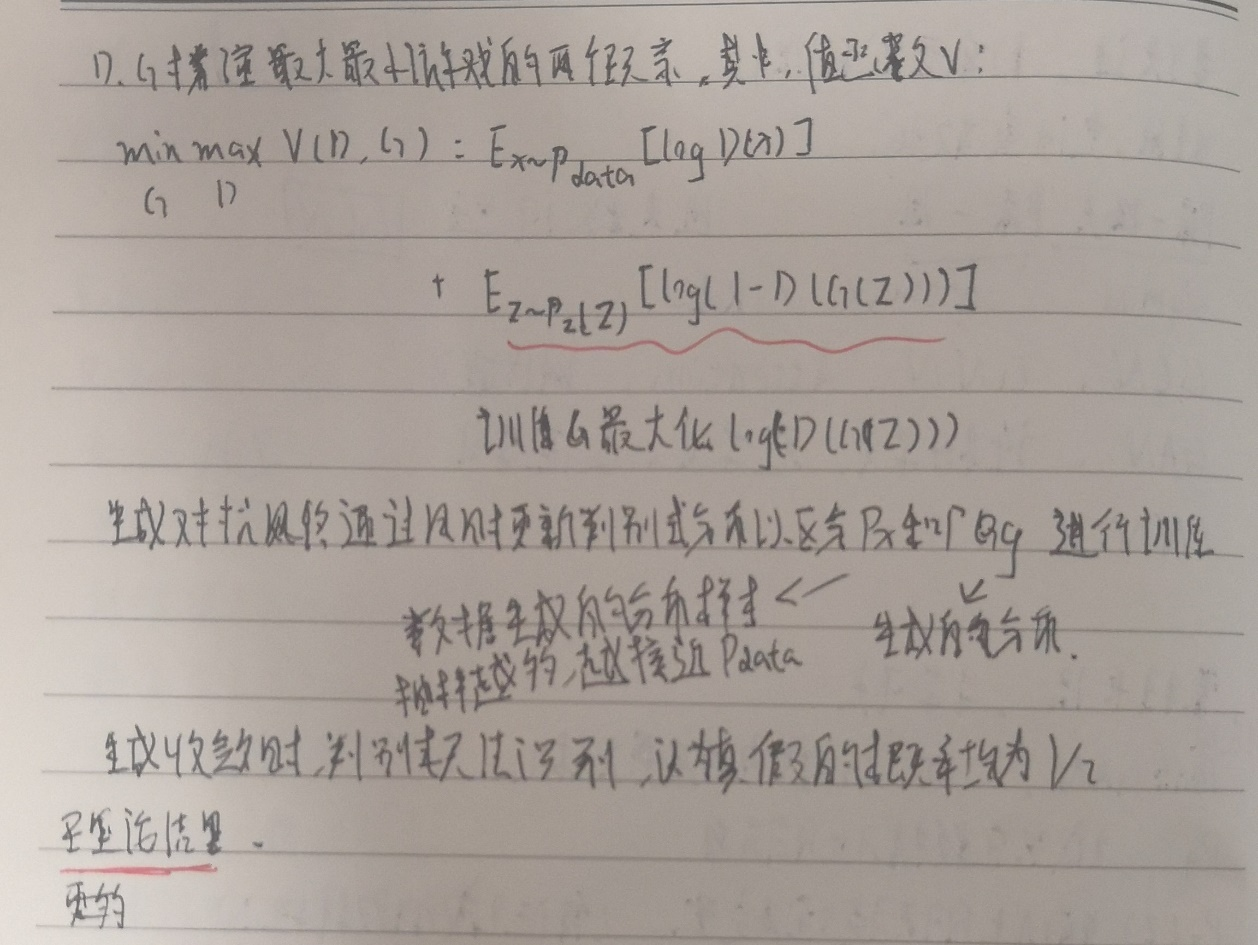 D、G扮演最大最小游戏的两个玩家,其中,值函数V:
min max V(D, G) = E x~P data [log D(x)]
G D
+ E z~P z(z) [log(1-D(G(z)))]
训练G最大化 log(D(G(z)))
生成对抗网络通过同时更新判别式分布以区分Px和 Qg 进行训练
数据生成的分布样本 <— ↙
生成的分布.
抽样越多,越接近Pdata
生成收敛时,判别式无法识别,认为真、假的概率均为1/2
理论结果.
更多